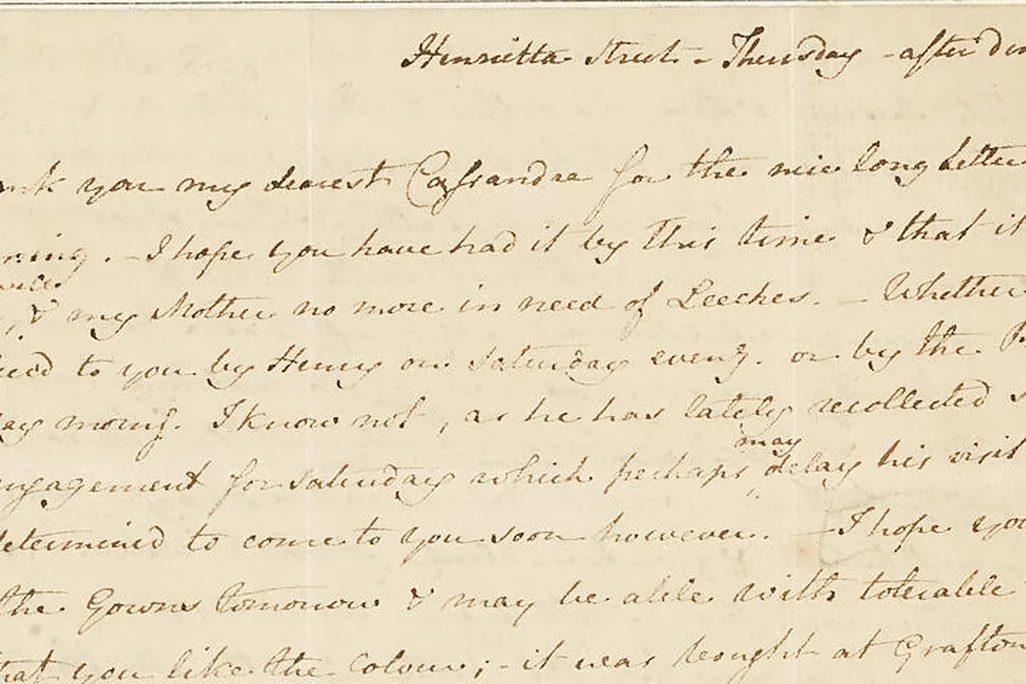 Henrietta Street - Thursday - after din
nk you my dearest Cassandra for the nice long Letter
ning. - I hope you have had it by this time & that it
will
, & my Mother no more in need of Leeches. - Whether
to you by Henry on Saturday eveng. or by the P
ay morng. I know not, as he has lately recollected s
may
ngagement for Saturday which perhaps delay his visit
determined to come to you soon however. - I hope you
the Gowns tomorrow & may be able with tolerable
hat you like the Colour; - it was bought at Grafton